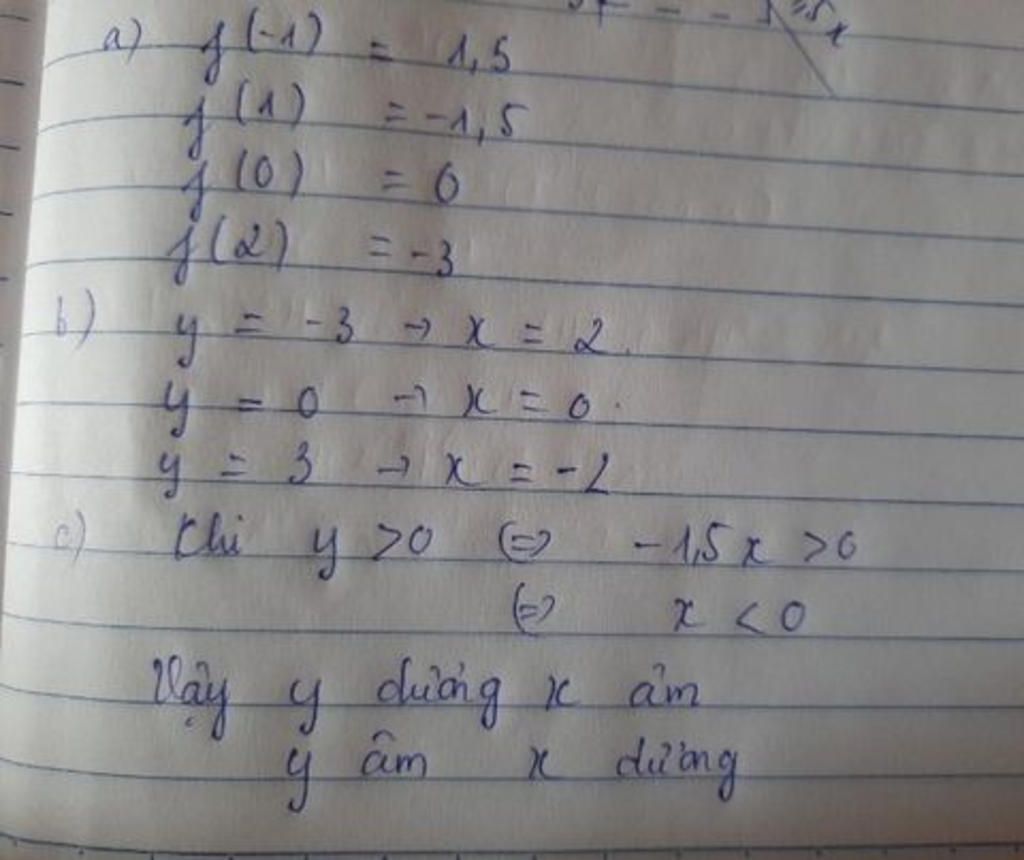 a) f(-1) = 1,5
f(1) = -1,5
f(0) = 0
f(2) = -3
b) y = -3 → x = 2.
y = 0 → x = 0.
y = 3 → x = -2
c) Khi y >0 (=) -1,5x >0
(=) x < 0
Vậy y dương x âm
y âm x dương